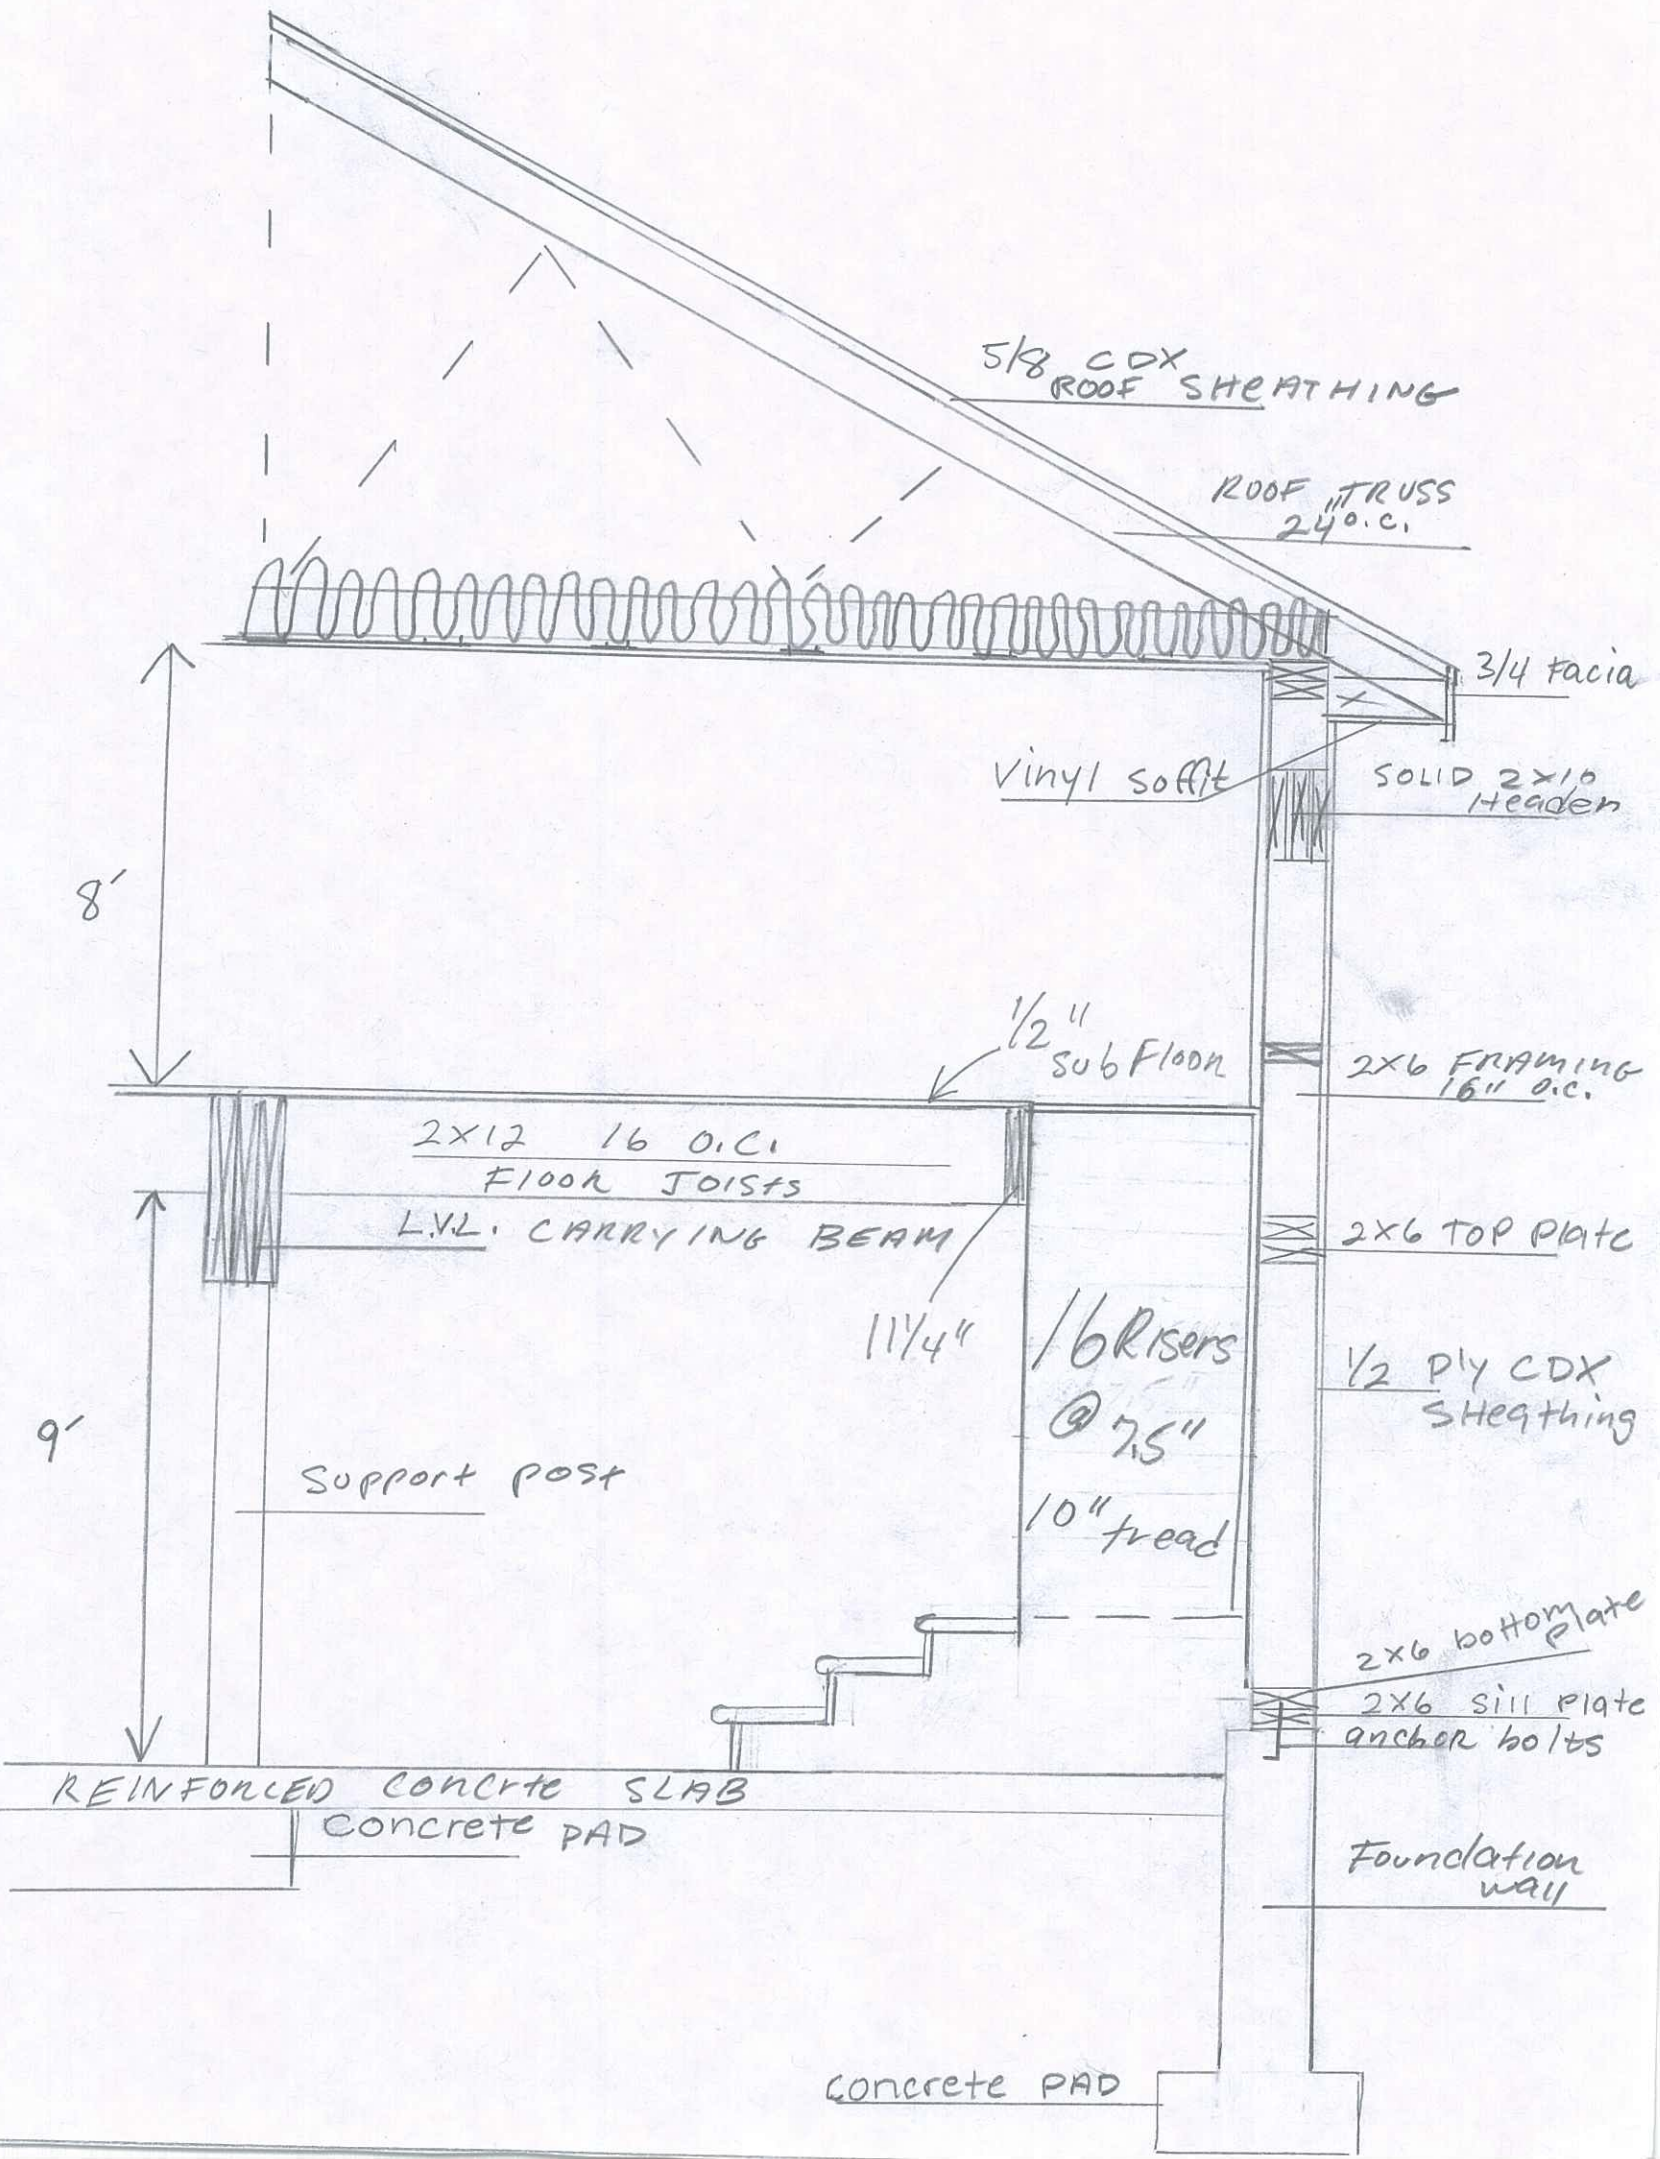 5/8 CDX
ROOF SHEATHING
ROOF TRUSS
24" O.C.
3/4 Facia
Vinyl Soffit
SOLID 2x10
Header
8'
1/2"
Sub Floor
2x6 FRAMING
16" O.C.
2x12 16 O.C.
Floor Joists
L.V.L. CARRYING BEAM
2x6 Top Plate
11 1/4"
16 Risers
@ 7.5"
10" tread
1/2 Ply CDX
SHeathing
9'
Support post
2x6 bottom
plate
2x6 Sill Plate
anchor bolts
REINFORCED concrte SLAB
concrete PAD
Foundation
wall
concrete PAD